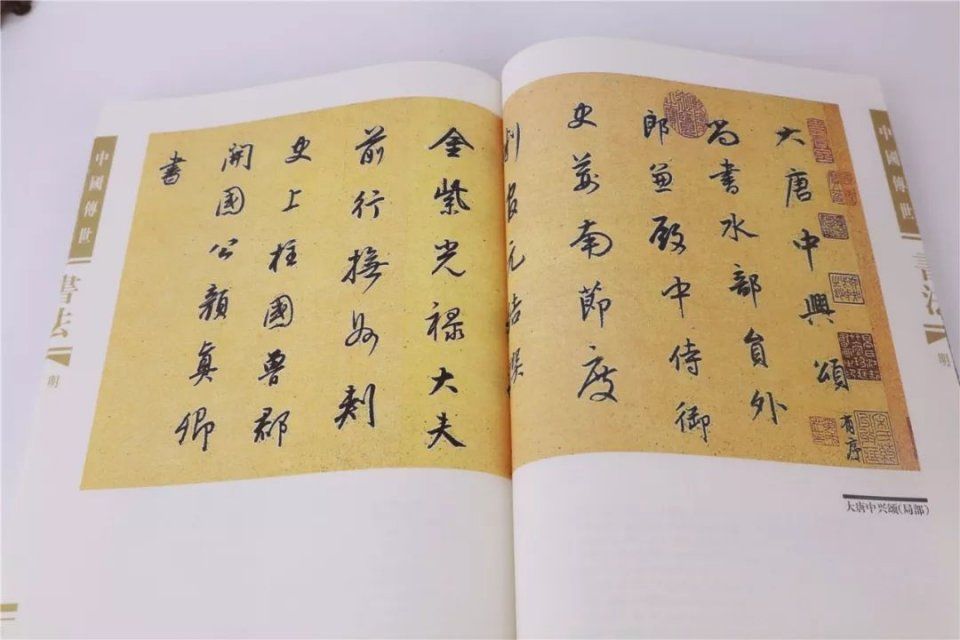 大唐中興頌
有序
尚書水部員外
郎兼殿中侍御
史荊南節度
判官元結撰
金紫光禄大夫
前行撫州刺
史上柱國魯郡
開國公顏真卿
書
大唐中兴颂(局部)
中國傳世
書法
明
中國傳世
書法
明